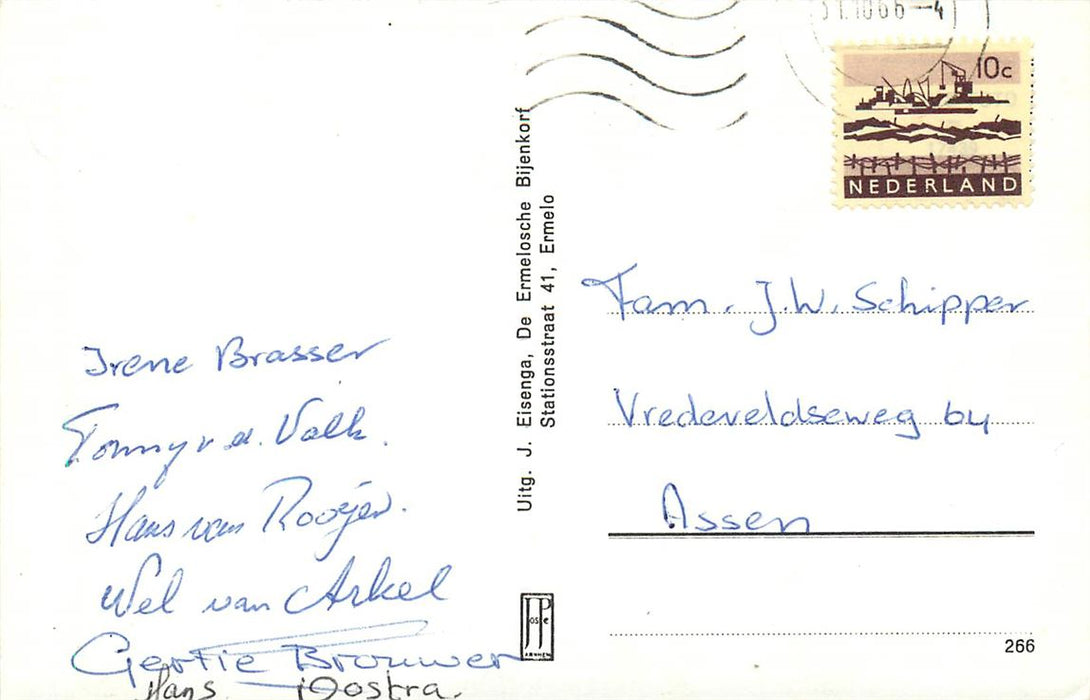 31.1066-4
10c
NEDERLAND
Irene Brasser
Tonny v.d. Valk.
Hans van Rooijen.
Wel van Arkel
Gertie Brouwer
Hans Joostra.
Uitg. J. Eisenga, De Ermelosche Bijenkorf
Stationsstraat 41, Ermelo
Fam. J.W. Schipper
Vredeveldseweg 64
Assen
JosPé
ARNHEM
266